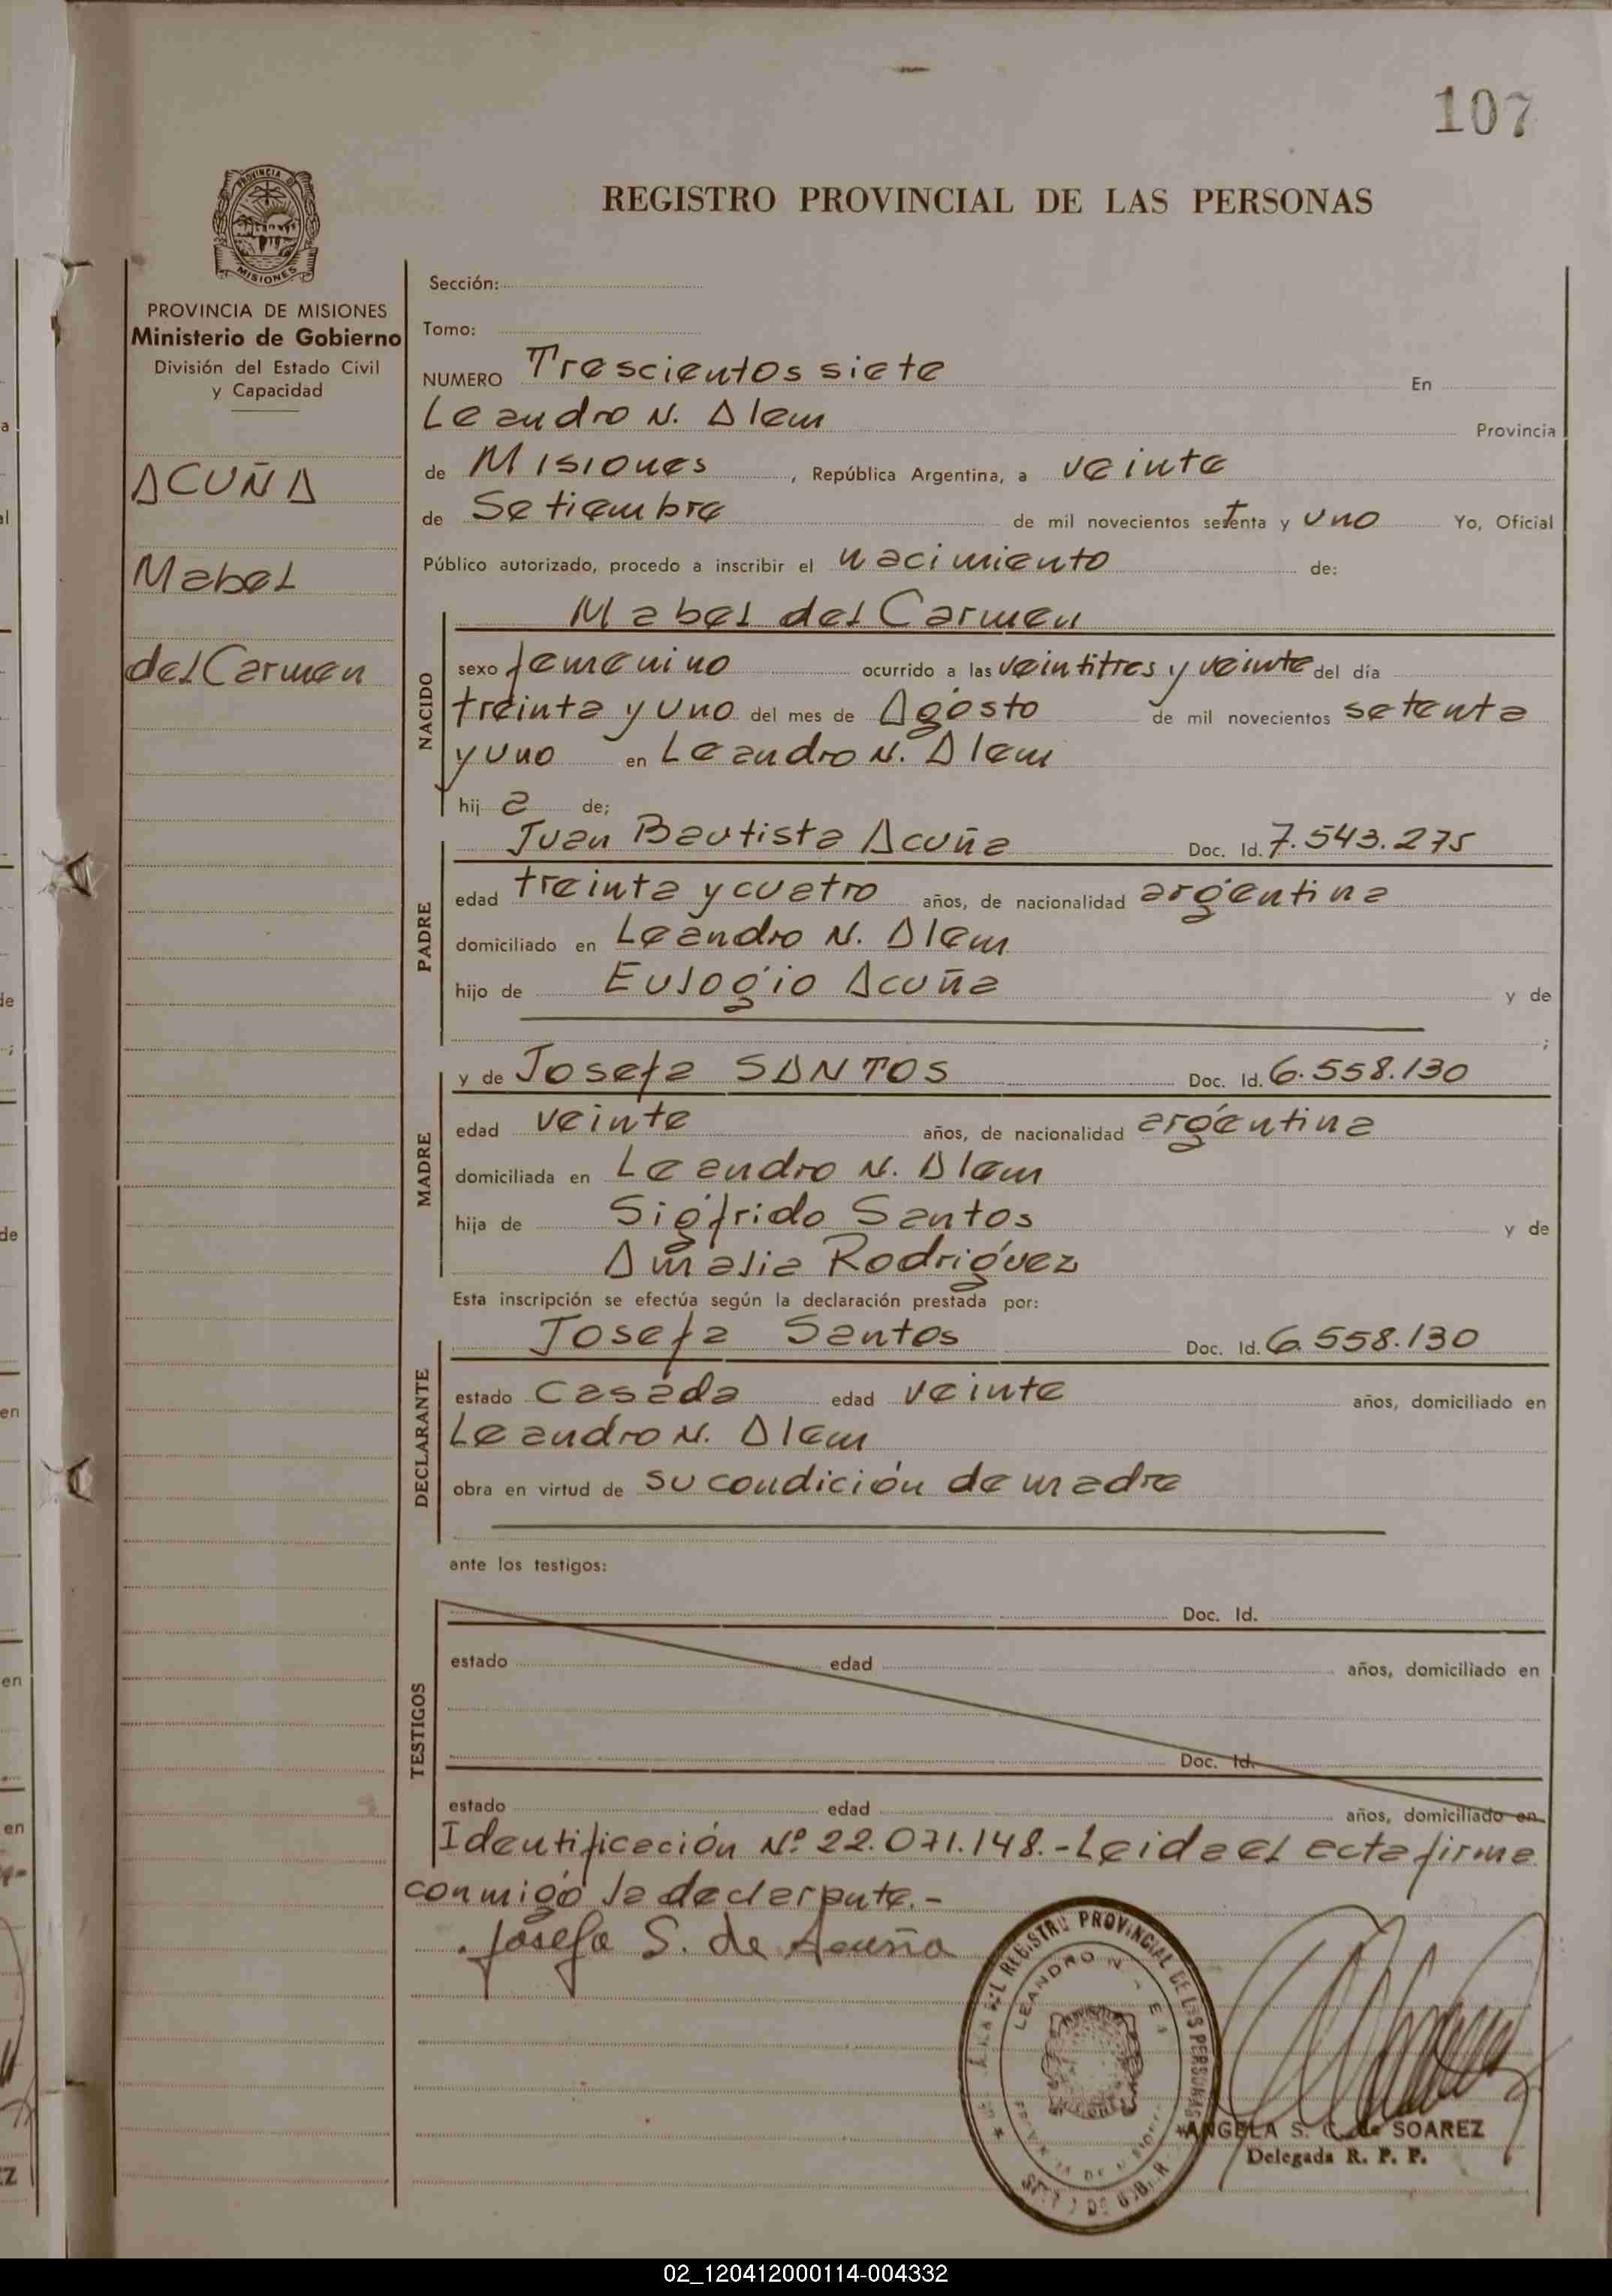 107
PROVINCIA DE
MISIONES
REGISTRO PROVINCIAL DE LAS PERSONAS
PROVINCIA DE MISIONES
Ministerio de Gobierno
División del Estado Civil
y Capacidad
ACUÑA
Mabel
del Carmen
Sección:
Tomo:
NUMERO Trescientos siete En
Leandro N. Alem Provincia
de Misiones, República Argentina, a veinte
de Setiembre de mil novecientos setenta y uno Yo, Oficial
Público autorizado, procedo a inscribir el nacimiento de:
NACIDO
Mabel del Carmen
sexo femenino ocurrido a las veintitres y veinte del día
treinta y uno del mes de Agosto de mil novecientos setenta
y uno en Leandro N. Alem
hij a de;
PADRE
Juan Bautista Acuña Doc. Id. 7.543.275
edad treinta y cuatro años, de nacionalidad argentina
domiciliado en Leandro N. Alem
hijo de Eulogio Acuña y de
;
MADRE
y de Josefa SANTOS Doc. Id. 6.558.130
edad veinte años, de nacionalidad argentina
domiciliada en Leandro N. Alem
hija de Sigfrido Santos y de
Amalia Rodriguez
Esta inscripción se efectúa según la declaración prestada por:
DECLARANTE
Josefa Santos Doc. Id. 6.558.130
estado casada edad veinte años, domiciliado en
Leandro N. Alem
obra en virtud de su condición de madre
ante los testigos:
TESTIGOS
Doc. Id.
estado edad años, domiciliado en
Doc. Id.
estado edad años, domiciliado en
Identificación Nº 22.071.148.- Leida el acta firma
conmigo la declarante.-
Josefa S. de Acuña
REGISTRO PROVINCIAL DE LAS PERSONAS
LEANDRO N
ANGELA S. C. de SOAREZ
Delegada R. P. P.
02_120412000114-004332